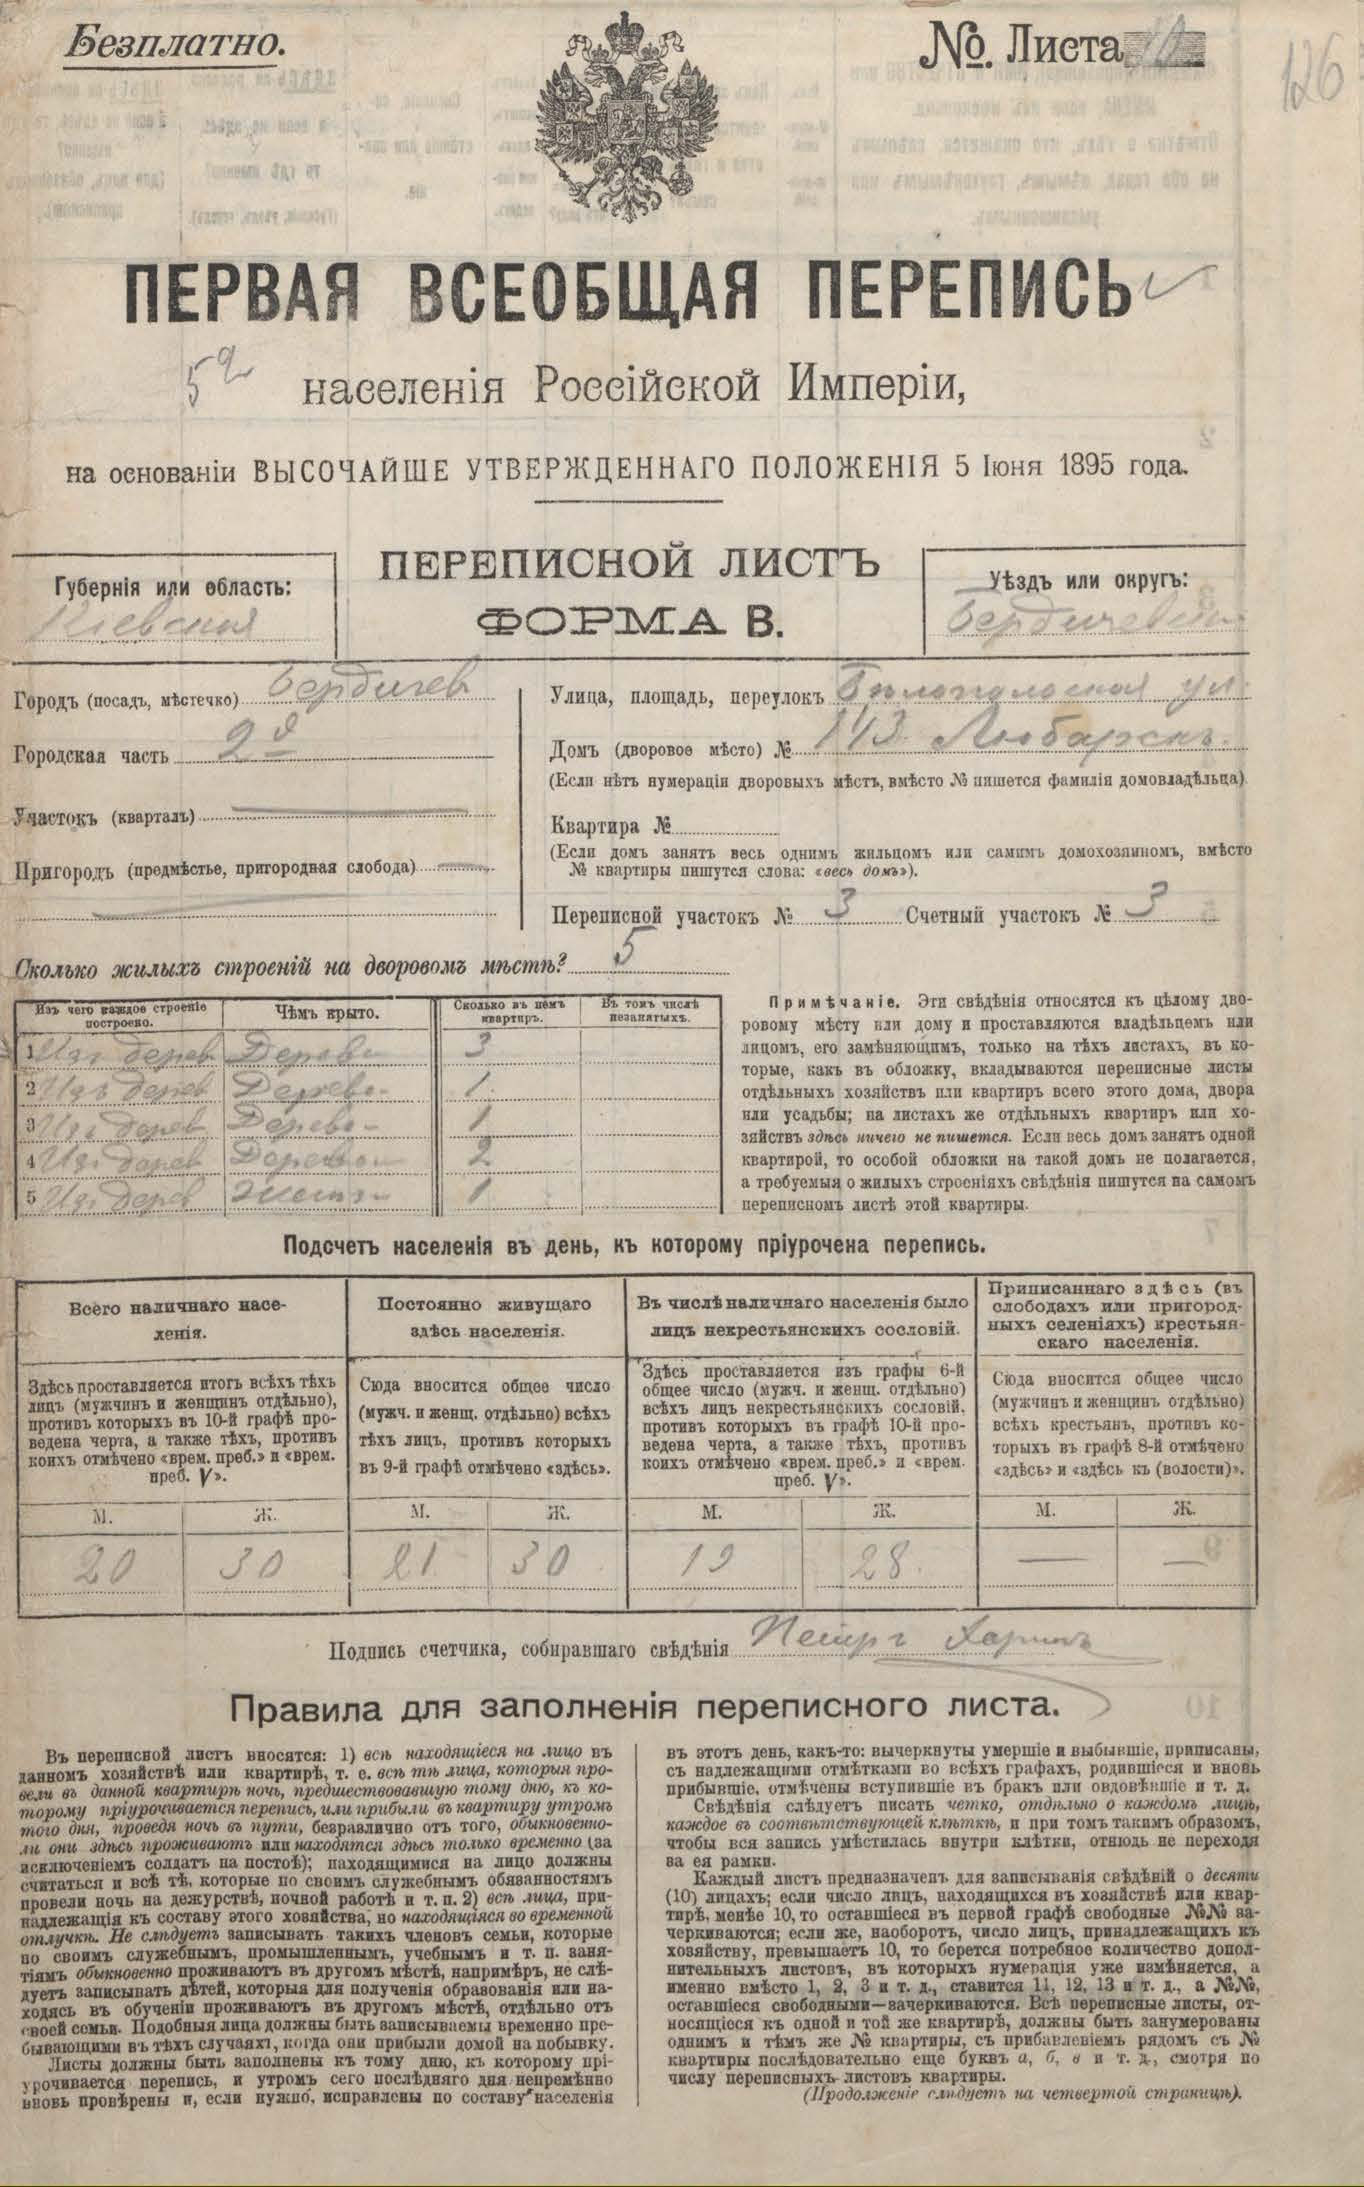 Безплатно.
№. Листа
126
ПЕРВАЯ ВСЕОБЩАЯ ПЕРЕПИСЬ
населенія Россійской Имперіи,
на основаніи ВЫСОЧАЙШЕ УТВЕРЖДЕННАГО ПОЛОЖЕНІЯ 5 Іюня 1895 года.
ПЕРЕПИСНОЙ ЛИСТЪ
ФОРМА В.
Губернія или область:
Кіевская
Уѣздъ или округъ:
Бердичевскій
Городъ (посадъ, мѣстечко) Бердичев
Городская часть 2я
Участокъ (кварталъ)
Пригородъ (предмѣстье, пригородная слобода)
Улица, площадь, переулокъ Бѣлопольская ул.
Домъ (дворовое мѣсто) № 143 Любарск
(Если нѣтъ нумераціи дворовыхъ мѣстъ, вмѣсто № пишется фамилія домовладѣльца)
Квартира №
(Если домъ занятъ весь однимъ жильцомъ или самимъ домохозяиномъ, вмѣсто
№ квартиры пишутся слова: «весь домъ»).
Переписной участокъ № 3 Счетный участокъ № 3
Сколько жилыхъ строеній на дворовомъ мѣстѣ? 5
Изъ чего каждое строеніе построено. Чѣмъ крыто. Сколько въ немъ квартиръ. Въ томъ числѣ незанятыхъ.
1 Изъ дерев Дерево 3
2 Изъ дерев Дерево 1
3 Изъ дерев Дерево 1
4 Изъ дерев Дерево 2
5 Изъ дерев 1
Примѣчаніе. Эти свѣдѣнія относятся къ цѣлому дво-
ровому мѣсту или дому и проставляются владѣльцемъ или
лицомъ, его замѣняющимъ, только на тѣхъ листахъ, въ ко-
торые, какъ въ обложку, вкладываются переписные листы
отдѣльныхъ хозяйствъ или квартиръ всего этого дома, двора
или усадьбы; на листахъ же отдѣльныхъ квартиръ или хо-
зяйствъ здѣсь ничего не пишется. Если весь домъ занятъ одной
квартирой, то особой обложки на такой домъ не полагается,
а требуемыя о жилыхъ строеніяхъ свѣдѣнія пишутся на самомъ
переписномъ листѣ этой квартиры.
Подсчетъ населенія въ день, къ которому пріурочена перепись.
Всего наличнаго насе-
ленія.
Здѣсь проставляется итогъ всѣхъ тѣхъ
лицъ (мужчинъ и женщинъ отдѣльно),
противъ которыхъ въ 10-й графѣ про-
ведена черта, а также тѣхъ, противъ
коихъ отмѣчено «врем. преб.» и «врем.
преб. V».
М. Ж.
20 30
Постоянно живущаго
здѣсь населенія.
Сюда вносится общее число
(мужч. и женщ. отдѣльно) всѣхъ
тѣхъ лицъ, противъ которыхъ
въ 9-й графѣ отмѣчено «здѣсь».
М. Ж.
21 30
Въ числѣ наличнаго населенія было
лицъ некрестьянскихъ сословій.
Здѣсь проставляется изъ графы 6-й
общее число (мужч. и женщ. отдѣльно)
всѣхъ лицъ некрестьянскихъ сословій,
противъ которыхъ въ графѣ 10-й про-
ведена черта, а также тѣхъ, противъ
коихъ отмѣчено «врем. преб.» и «врем.
преб. V».
М. Ж.
19 28
Приписаннаго здѣсь (въ
слободахъ или пригород-
ныхъ селеніяхъ) крестьян-
скаго населенія.
Сюда вносится общее число
(мужчинъ и женщинъ отдѣльно)
всѣхъ крестьянъ, противъ ко-
торыхъ въ графѣ 8-й отмѣчено
«здѣсь» и «здѣсь къ (волости)».
М. Ж.
— —
Подпись счетчика, собиравшаго свѣдѣнія Петръ
Правила для заполненія переписного листа.
Въ переписной листъ вносятся: 1) всѣ находящіеся на лицо въ
данномъ хозяйствѣ или квартирѣ, т. е. всѣ тѣ лица, которыя про-
вели въ данной квартирѣ ночь, предшествовавшую тому дню, къ ко-
торому пріурочивается перепись, или прибыли въ квартиру утромъ
того дня, проведя ночь въ пути, безразлично отъ того, обыкновенно-
ли они здѣсь проживаютъ или находятся здѣсь только временно (за
исключеніемъ солдатъ на постоѣ); находящимися на лицо должны
считаться и всѣ тѣ, которые по своимъ служебнымъ обязанностямъ
провели ночь на дежурствѣ, ночной работѣ и т. п. 2) всѣ лица, при-
надлежащія къ составу этого хозяйства, но находящіяся во временной
отлучкѣ. Не слѣдуетъ записывать такихъ членовъ семьи, которые
по своимъ служебнымъ, промышленнымъ, учебнымъ и т. п. заня-
тіямъ обыкновенно проживаютъ въ другомъ мѣстѣ, напримѣръ, не слѣ-
дуетъ записывать дѣтей, которыя для полученія образованія или на-
ходясь въ обученіи проживаютъ въ другомъ мѣстѣ, отдѣльно отъ
своей семьи. Подобныя лица должны быть записываемы временно пре-
бывающими въ тѣхъ случаяхъ, когда они прибыли домой на побывку.
Листы должны быть заполнены къ тому дню, къ которому прі-
урочивается перепись, и утромъ сего послѣдняго дня непремѣнно
вновь провѣрены и, если нужно, исправлены по составу населенія
въ этотъ день, какъ-то: вычеркнуты умершіе и выбывшіе, приписаны,
съ надлежащими отмѣтками во всѣхъ графахъ, родившіеся и вновь
прибывшіе, отмѣчены вступившіе въ бракъ или овдовѣвшіе и т. д.
Свѣдѣнія слѣдуетъ писать четко, отдѣльно о каждомъ лицѣ,
каждое въ соотвѣтствующей клѣткѣ, и при томъ такимъ образомъ,
чтобы вся запись умѣстилась внутри клѣтки, отнюдь не переходя
за ея рамки.
Каждый листъ предназначенъ для записыванія свѣдѣній о десяти
(10) лицахъ; если число лицъ, находящихся въ хозяйствѣ или квар-
тирѣ, менѣе 10, то оставшіеся въ первой графѣ свободные №№ за-
черкиваются; если же, наоборотъ, число лицъ, принадлежащихъ къ
хозяйству, превышаетъ 10, то берется потребное количество допол-
нительныхъ листовъ, въ которыхъ нумерація уже измѣняется, а
именно вмѣсто 1, 2, 3 и т. д., ставится 11, 12, 13 и т. д., а №№,
оставшіеся свободными—зачеркиваются. Всѣ переписные листы, от-
носящіеся къ одной и той же квартирѣ, должны быть занумерованы
однимъ и тѣмъ же № квартиры, съ прибавленіемъ рядомъ съ №
квартиры послѣдовательно еще буквъ а, б, в и т. д., смотря по
числу переписныхъ листовъ квартиры.
(Продолженіе слѣдуетъ на четвертой страницѣ).